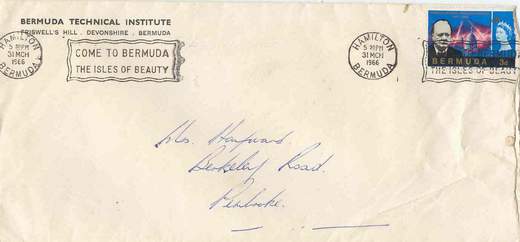 BERMUDA TECHNICAL INSTITUTE
FRISWELL'S HILL . DEVONSHIRE . BERMUDA
HAMILTON
5 30PM
31 MCH
1966
BERMUDA
COME TO BERMUDA
THE ISLES OF BEAUTY
HAMILTON
5 30PM
31 MCH
1966
BERMUDA
THE ISLES OF BEAUTY
BERMUDA 3d
Mrs. Hayward
Berkeley Road.
Pembroke.